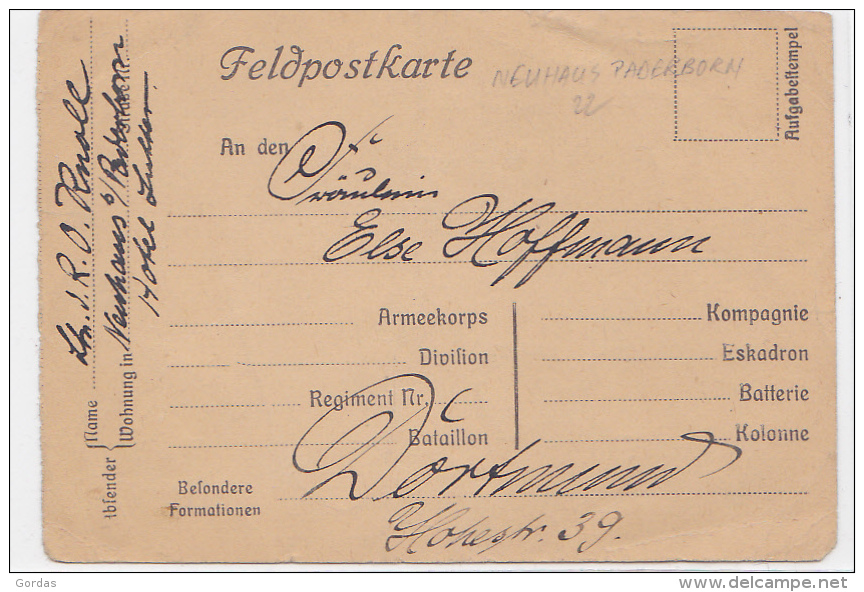 Feldpostkarte
NEUHAUS PADERBORN
22
Aufgabestempel
An den
Fräulein
Else Hoffmann
Armeekorps
Kompagnie
Division
Eskadron
Regiment Nr.
Batterie
Bataillon
Kolonne
Dortmund
Besondere
Formationen
Hohestr. 39.
Absender
Name Ltn. d. R. O. Knoll
Wohnung in Neuhaus b/Paderborn
Straße Nr.
Hotel
Gordas
delcampe.net